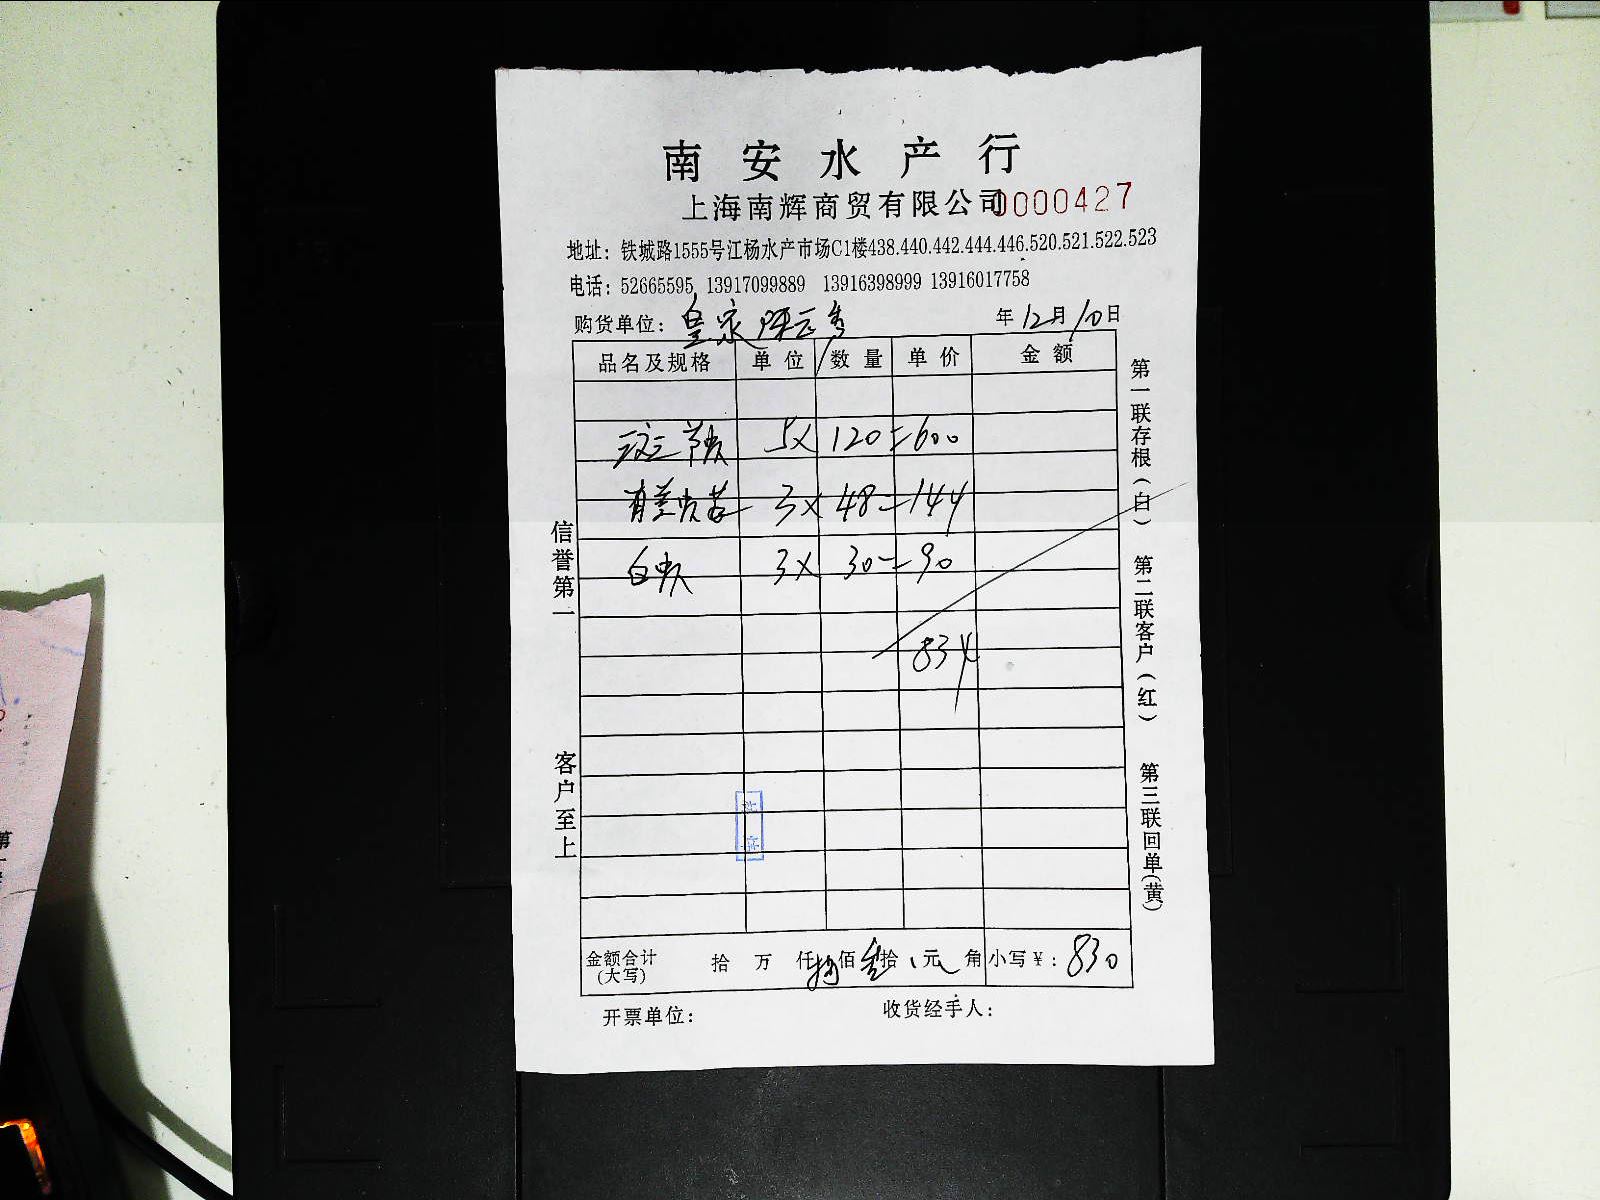 南安水产行
上海南辉商贸有限公司 0000427
地址：铁城路1555号江杨水产市场C1楼438.440.442.444.446.520.521.522.523
电话：52665595 13917099889 13916398999 13916017758
购货单位：皇家 年12月10日
品名及规格 单位 数量 单价 金额
5× 120=600
3× 48=144
白 3× 30=90
834
金额合计(大写) 拾 万 仟 捌佰 叁拾 元 角 小写￥：830
开票单位： 收货经手人：
信誉第一
客户至上
第一联存根(白)
第二联客户(红)
第三联回单(黄)